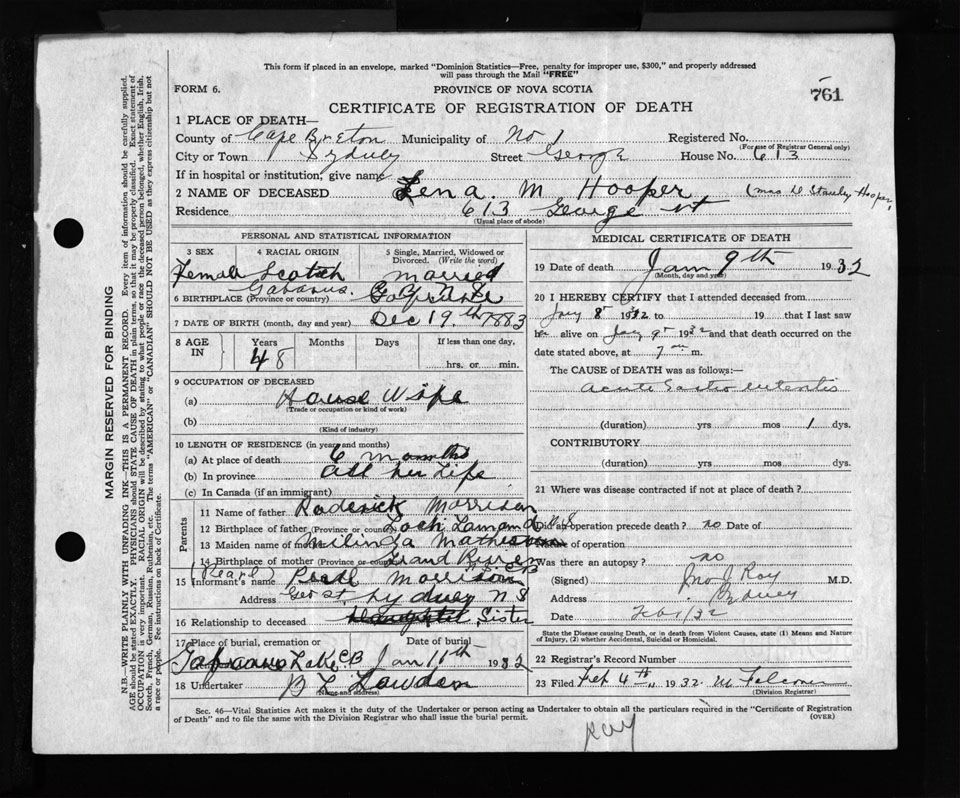 This form if placed in an envelope, marked "Dominion Statistics—Free, penalty for improper use, $300," and properly addressed
will pass through the Mail "FREE"
FORM 6.
PROVINCE OF NOVA SCOTIA
761
CERTIFICATE OF REGISTRATION OF DEATH
1 PLACE OF DEATH—
County of Cape Breton Municipality of No 1 Registered No.
(For use of Registrar General only)
City or Town Sydney Street George House No. 613
If in hospital or institution, give name
2 NAME OF DECEASED Lena M Hooper (Mrs W Stanley Hooper)
Residence 613 George St
(Usual place of abode)
PERSONAL AND STATISTICAL INFORMATION
3 SEX 4 RACIAL ORIGIN 5 Single, Married, Widowed or Divorced. (Write the word)
Female Scotch married
6 BIRTHPLACE (Province or country) Gabarus
7 DATE OF BIRTH (month, day and year) Dec 19th 1883
8 AGE IN Years Months Days If less than one day,
48 hrs. or min.
9 OCCUPATION OF DECEASED
(a) House Wife
(Trade or occupation or kind of work)
(b)
(Kind of industry)
10 LENGTH OF RESIDENCE (in years and months)
(a) At place of death 6 months
(b) In province all her life
(c) In Canada (if an immigrant)
Parents
11 Name of father Roderick Morrison
12 Birthplace of father (Province or country) Loch Lomond N.S
13 Maiden name of mother Milinda Matheson
14 Birthplace of mother (Province or country) Grand River CB
15 Informant's name (Pearl) Pearl Morrison
Address Geo St. Sydney N S
16 Relationship to deceased Daughter Sister
17 Place of burial, cremation or Date of burial
Gabarus Lake CB Jan 11th 1932
18 Undertaker
(Name and address)
MEDICAL CERTIFICATE OF DEATH
19 Date of death Jan 9th 1932
(Month, day and year)
20 I HEREBY CERTIFY that I attended deceased from
Jany 8 1932 to 19 that I last saw
h alive on Jany 9 1932 and that death occurred on the
date stated above, at 7 am m.
The CAUSE of DEATH was as follows:—
Acute Gastro enteritis
(duration) yrs mos 1 dys.
CONTRIBUTORY
(duration) yrs mos dys.
21 Where was disease contracted if not at place of death?
Did an operation precede death? no Date of
Name of operation
Was there an autopsy? no
(Signed) Jno J Roy M.D.
Address Sydney
Date Feb 1/32
State the Disease causing Death, or in death from Violent Causes, state (1) Means and Nature
of Injury, (2) whether Accidental, Suicidal or Homicidal.
22 Registrar's Record Number
23 Filed Feb 4th 1932
(Division Registrar)
Sec. 46—Vital Statistics Act makes it the duty of the Undertaker or person acting as Undertaker to obtain all the particulars required in the "Certificate of Registration
of Death" and to file the same with the Division Registrar who shall issue the burial permit.
(OVER)
MARGIN RESERVED FOR BINDING
N.B.—WRITE PLAINLY WITH UNFADING INK—THIS IS A PERMANENT RECORD. Every item of information should be carefully supplied.
AGE should be stated EXACTLY. PHYSICIANS should STATE CAUSE OF DEATH in plain terms, so that it may be properly classified. Exact statement of
OCCUPATION is very important. RACIAL ORIGIN will be described by stating to what people or race the deceased person belonged, whether English, Irish,
Scotch, French, German, Russian, Ruthenian, etc. The terms "AMERICAN" or "CANADIAN" SHOULD NOT BE USED as they express citizenship but not
a race or people. See instructions on back of Certificate.